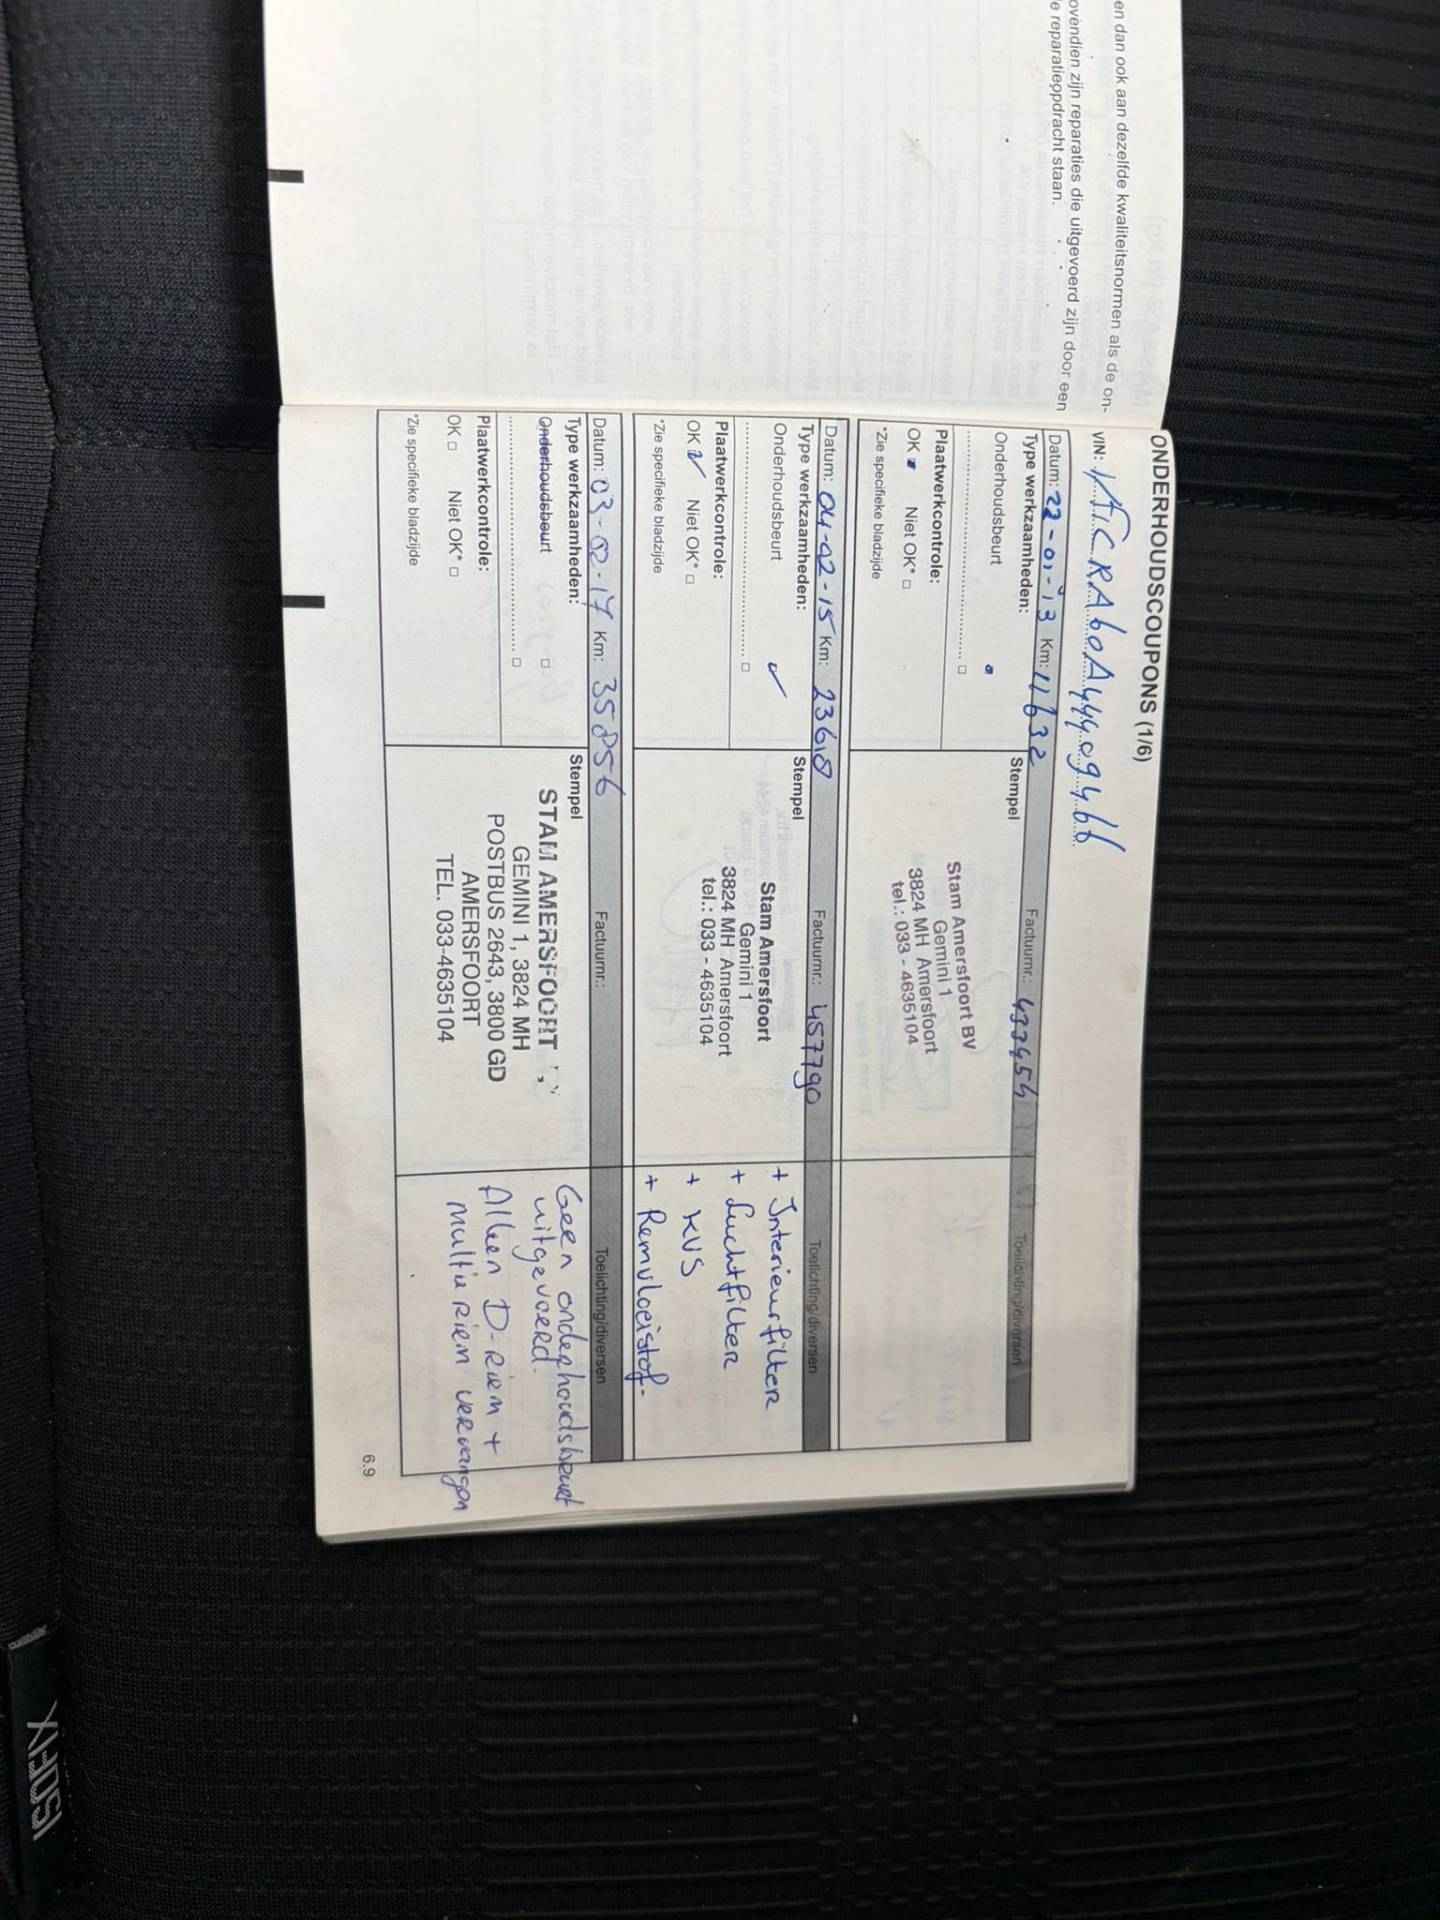 en dan ook aan dezelfde kwaliteitsnormen als de on-
ovendien zijn reparaties die uitgevoerd zijn door een
e reparatieopdracht staan.
ONDERHOUDSCOUPONS (1/6)
VIN:
Datum: 22-01-13 Km: 11632 Factuurnr.: 433454 Toelichting/diversen
Type werkzaamheden: Stempel
Onderhoudsbeurt
Plaatwerkcontrole:
OK Niet OK* □
*Zie specifieke bladzijde
Stam Amersfoort BV
Gemini 1
3824 MH Amersfoort
tel.: 033 - 4635104
Datum: 04-02-15 Km: 23618 Factuurnr.: 457790 Toelichting/diversen
Type werkzaamheden: Stempel
Onderhoudsbeurt ✓
Plaatwerkcontrole:
OK ✓ Niet OK* □
*Zie specifieke bladzijde
Stam Amersfoort
Gemini 1
3824 MH Amersfoort
tel.: 033 - 4635104
+ Interieurfilter
+ Luchtfilter
+ KVS
+ Remvloeistof.
Datum: 03-02-17 Km: 35856 Factuurnr.: Toelichting/diversen
Type werkzaamheden: Stempel
Onderhoudsbeurt □
Plaatwerkcontrole:
OK □ Niet OK* □
*Zie specifieke bladzijde
STAM AMERSFOORT
GEMINI 1, 3824 MH
POSTBUS 2643, 3800 GD
AMERSFOORT
TEL. 033-4635104
Geen onderhoudsbeurt
uitgevoerd.
Alleen D-Riem +
Multi Riem vervangen
6.9
ISOFIX